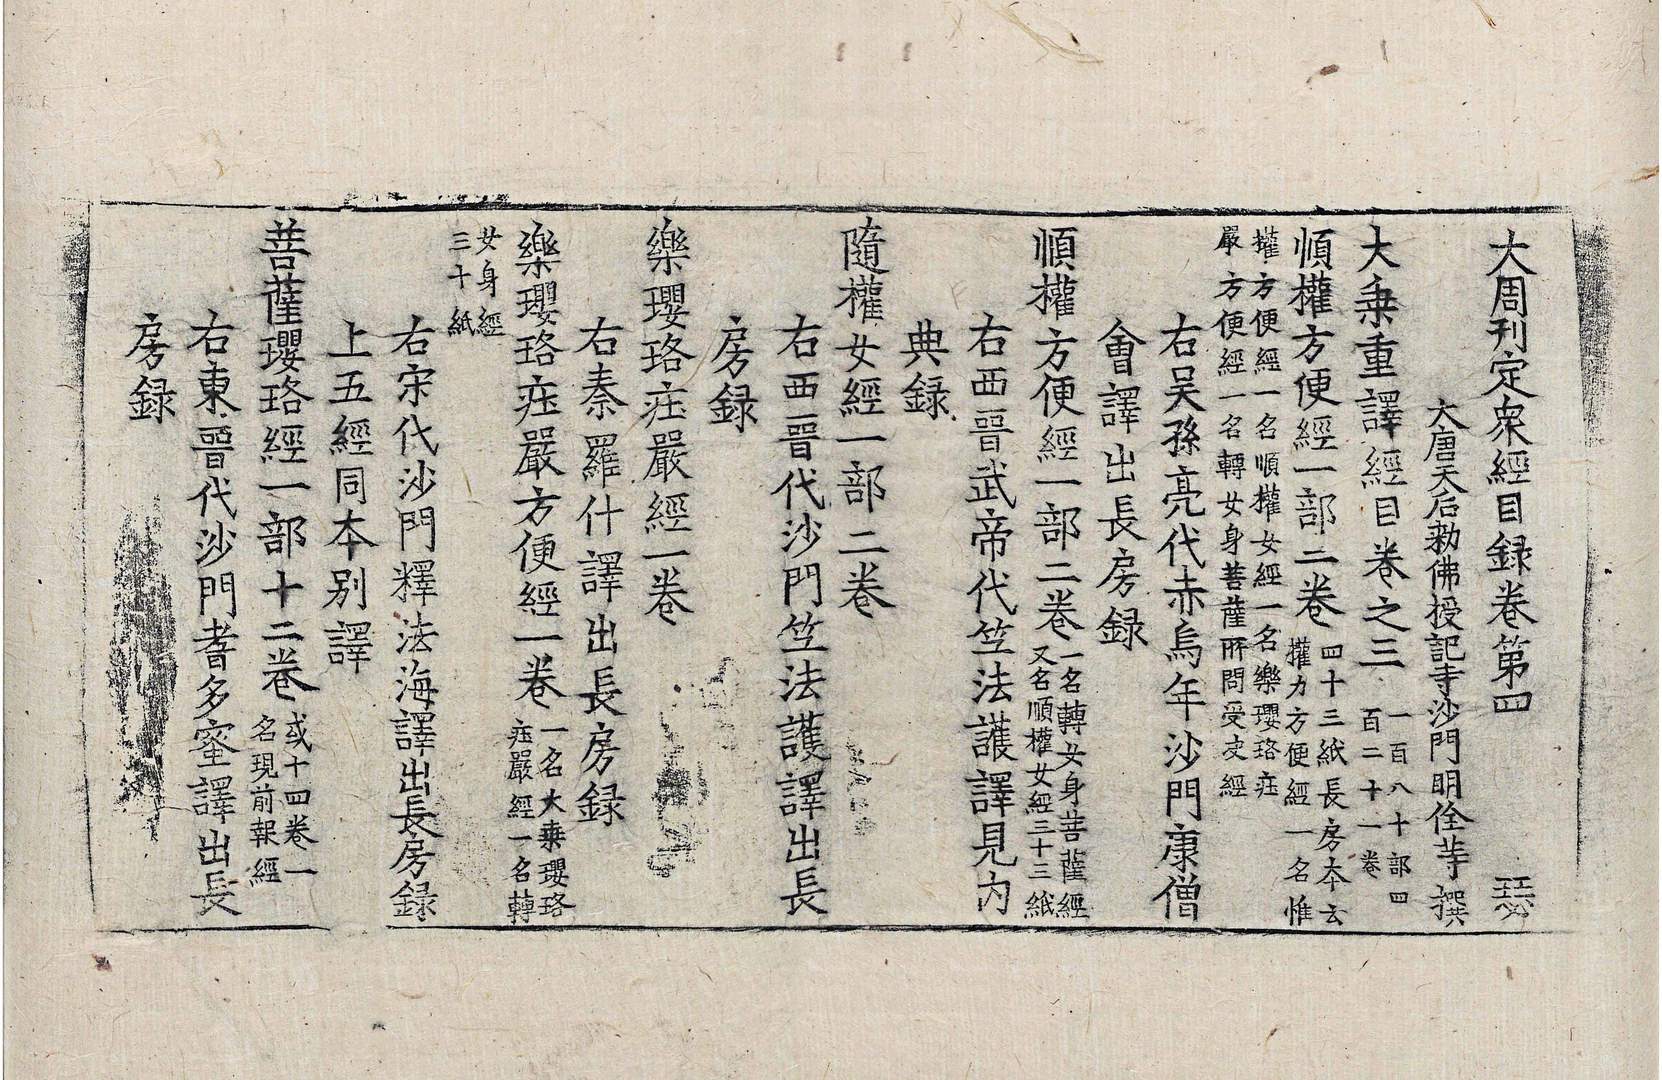 大周刊定衆經目録卷第四 瑟
大唐天后勑佛授記寺沙門明佺等撰
大乗重譯經目卷之三 一百八十部四
百二十一卷
順權方便經一部二卷 四十三紙長房本云
權力方便經一名惟
權方便經一名順權女經一名樂瓔珞庄
嚴方便經一名轉女身菩薩所問受决經
右吴孫亮代赤烏年沙門康僧
會譯出長房録
順權方便經一部二卷 一名轉女身菩薩經
又名順權女經三十三紙
右西晉武帝代竺法護譯見内
典録
隨權女經一部二卷
右西晉代沙門竺法護譯出長
房録
樂瓔珞庄嚴經一卷
右秦羅什譯出長房録
樂瓔珞庄嚴方便經一卷 一名大乗瓔珞
庄嚴經一名轉
女身經
三十紙
右宋代沙門釋法海譯出長房録
上五經同本别譯
菩薩瓔珞經一部十二卷 或十四卷一
名現前報經
右東晉代沙門耆多蜜譯出長
房録